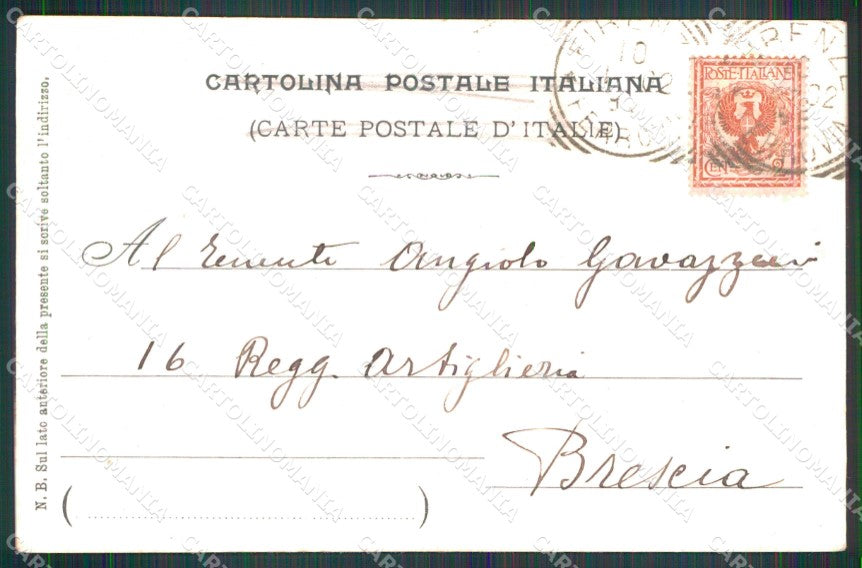 CARTOLINA POSTALE ITALIANA
(CARTE POSTALE D'ITALIE)
FIRENZE
10
FIRENZE
02
POSTE-ITALIANE
CENT 2
Al Tenente Angiolo Gavazzeni
16 Regg. Artiglieria
Brescia
N. B. Sul lato anteriore della presente si scrive soltanto l'indirizzo.
CARTOLINOMANIA